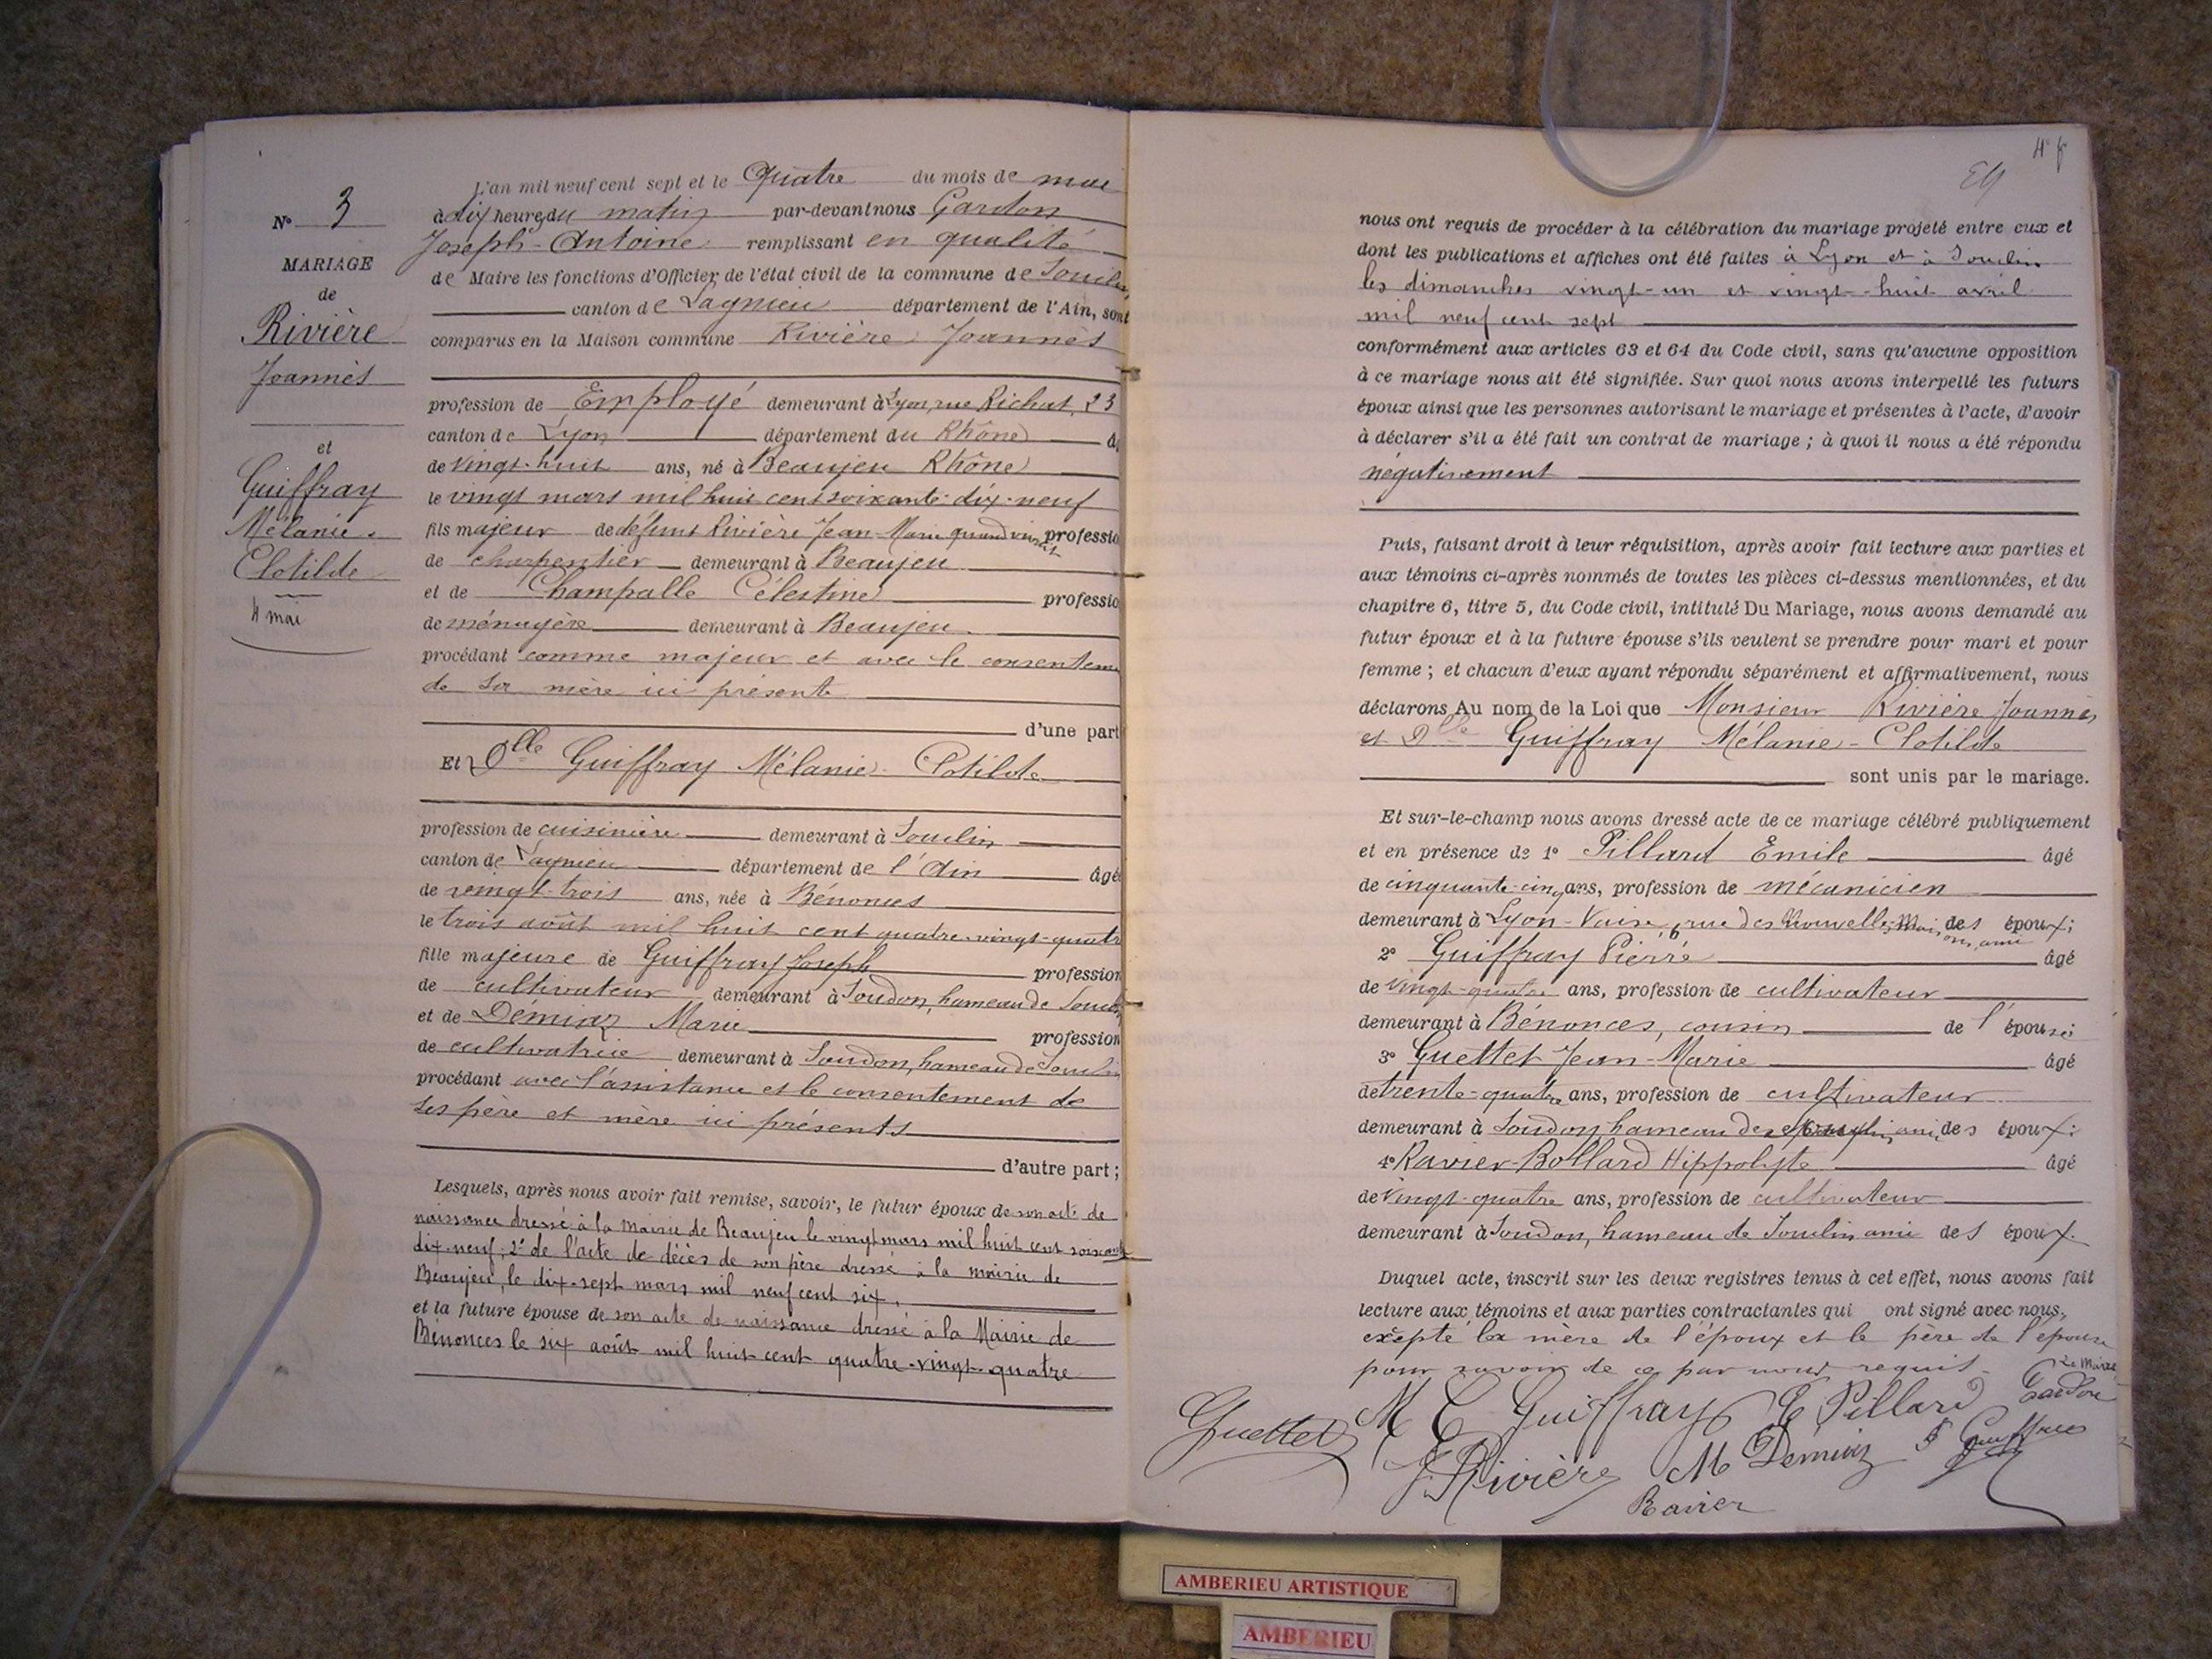 N° 3
MARIAGE
de
Rivière
Joannès
et
Guiffray
Mélanie-
Clotilde
4 mai
L'an mil neuf cent sept et le Quatre du mois de mai
à dix heures du matin par-devant nous Gardon
Joseph-Antoine remplissant en qualité
de Maire les fonctions d'Officier de l'état civil de la commune de Souclin,
canton de Lagnieu département de l'Ain, sont
comparus en la Maison commune Rivière Joannès
profession de Employé demeurant à Lyon, rue Richat, 23
canton de Lyon département du Rhône
de vingt-huit ans, né à Beaujeu Rhône
le vingt mars mil huit cent soixante-dix-neuf
fils majeur de défunt Rivière Jean-Marie quand vivait professio
de charpentier demeurant à Beaujeu
et de Champalle Célestine professio
de ménagère demeurant à Beaujeu
procédant comme majeur et avec le consenteme
de sa mère ici présente
d'une part
Et Dlle Guiffray Mélanie-Clotilde
profession de cuisinière demeurant à Souclin
canton de Lagnieu département de l'Ain âgé
de vingt-trois ans, née à Bénonces
le trois août mil huit cent quatre-vingt-quatre
fille majeure de Guiffray Joseph profession
de cultivateur demeurant à Soudon, hameau de Souclin
et de Démiaz Marie profession
de cultivatrice demeurant à Soudon, hameau de Souclin
procédant avec l'assistance et le consentement de
ses père et mère ici présents
d'autre part ;
Lesquels, après nous avoir fait remise, savoir, le futur époux de son acte de
naissance dressé à la Mairie de Beaujeu le vingt mars mil huit cent soixante
dix-neuf; 2° de l'acte de décès de son père dressé à la mairie de
Beaujeu, le dix-sept mars mil neuf cent six,
et la future épouse de son acte de naissance dressé à la Mairie de
Bénonces le six août mil huit cent quatre-vingt-quatre
nous ont requis de procéder à la célébration du mariage projeté entre eux et
dont les publications et affiches ont été faites à Lyon et à Souclin
les dimanches vingt-un et vingt-huit avril
mil neuf cent sept
conformément aux articles 63 et 64 du Code civil, sans qu'aucune opposition
à ce mariage nous ait été signifiée. Sur quoi nous avons interpellé les futurs
époux ainsi que les personnes autorisant le mariage et présentes à l'acte, d'avoir
à déclarer s'il a été fait un contrat de mariage ; à quoi il nous a été répondu
négativement
Puis, faisant droit à leur réquisition, après avoir fait lecture aux parties et
aux témoins ci-après nommés de toutes les pièces ci-dessus mentionnées, et du
chapitre 6, titre 5, du Code civil, intitulé Du Mariage, nous avons demandé au
futur époux et à la future épouse s'ils veulent se prendre pour mari et pour
femme ; et chacun d'eux ayant répondu séparément et affirmativement, nous
déclarons Au nom de la Loi que Monsieur Rivière Joannès
et Dlle Guiffray Mélanie-Clotilde
sont unis par le mariage.
Et sur-le-champ nous avons dressé acte de ce mariage célébré publiquement
et en présence de 1° Pillard Emile âgé
de cinquante-cinq ans, profession de mécanicien
demeurant à Lyon-Vaise, rue des Nouvelles ami des époux;
2° Guiffray Pierre âgé
de vingt-quatre ans, profession de cultivateur
demeurant à Bénonces, cousin de l'épouse;
3° Guettet Jean-Marie âgé
de trente-quatre ans, profession de cultivateur
demeurant à Soudon hameau de ami des époux;
4° Ravier-Bollard Hippolyte âgé
de vingt-quatre ans, profession de cultivateur
demeurant à Soudon, hameau de Souclin ami des époux.
Duquel acte, inscrit sur les deux registres tenus à cet effet, nous avons fait
lecture aux témoins et aux parties contractantes qui ont signé avec nous,
excepté la mère de l'époux et le père de l'épouse
pour savoir de ce par nous requis.
Le Maire
Gardon
Guettet M C Guiffray E Pillard
J Rivière M Démiaz P Guiffray
Ravier
AMBERIEU ARTISTIQUE
AMBERIEU